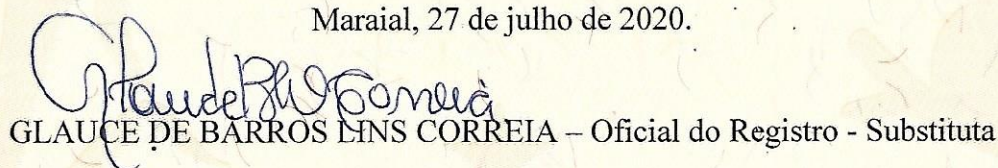 Maraial, 27 de julho de 2020.
Glauce B Correia
GLAUCE DE BARROS LINS CORREIA – Oficial do Registro - Substituta